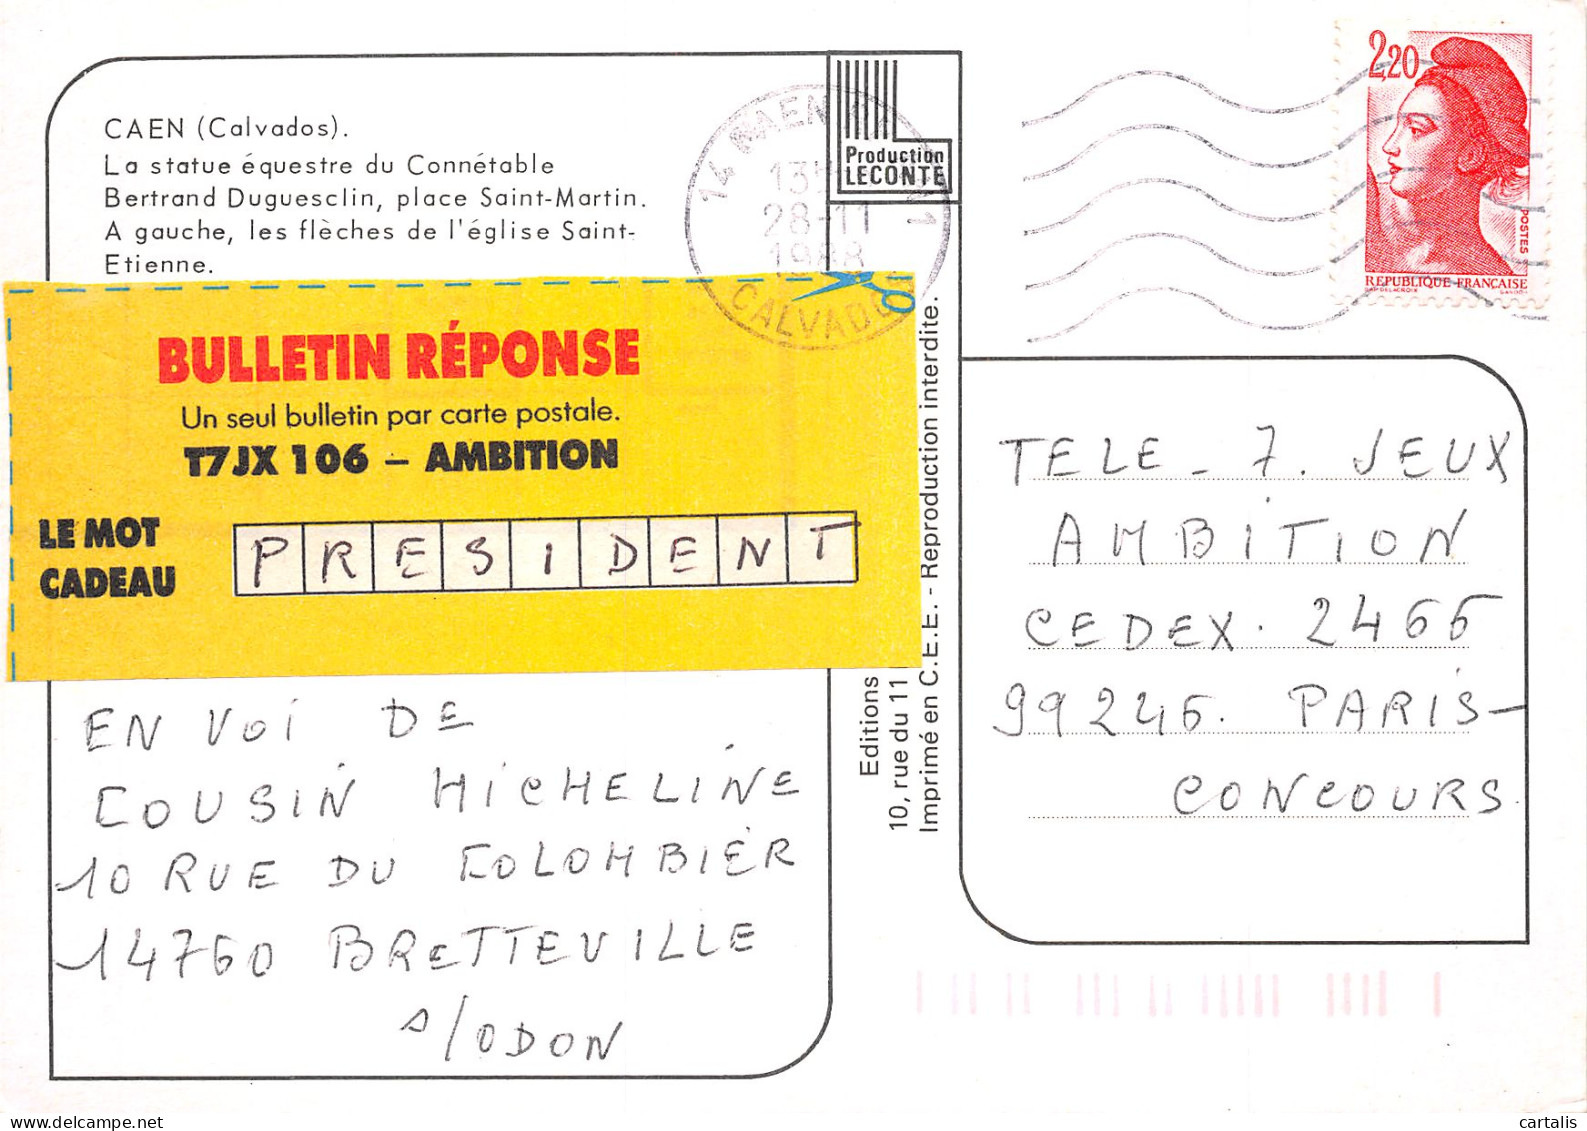 CAEN (Calvados).
La statue équestre du Connétable
Bertrand Duguesclin, place Saint-Martin.
A gauche, les flèches de l'église Saint-
Etienne.
Production
LECONTE
14 CAEN
13H
28-11
1988
CALVADOS
2,20
POSTES
REPUBLIQUE FRANÇAISE
BULLETIN RÉPONSE
Un seul bulletin par carte postale.
T7JX 106 – AMBITION
LE MOT
CADEAU
PRESIDENT
EN VOI DE
COUSIN MICHELINE
10 RUE DU COLOMBIER
14760 BRETTEVILLE
s/ODON
Editions
10, rue du 11
Imprimé en C.E.E. - Reproduction interdite.
TELE - 7. JEUX
AMBITION
CEDEX. 2466
99246. PARIS-
CONCOURS.
cartalis